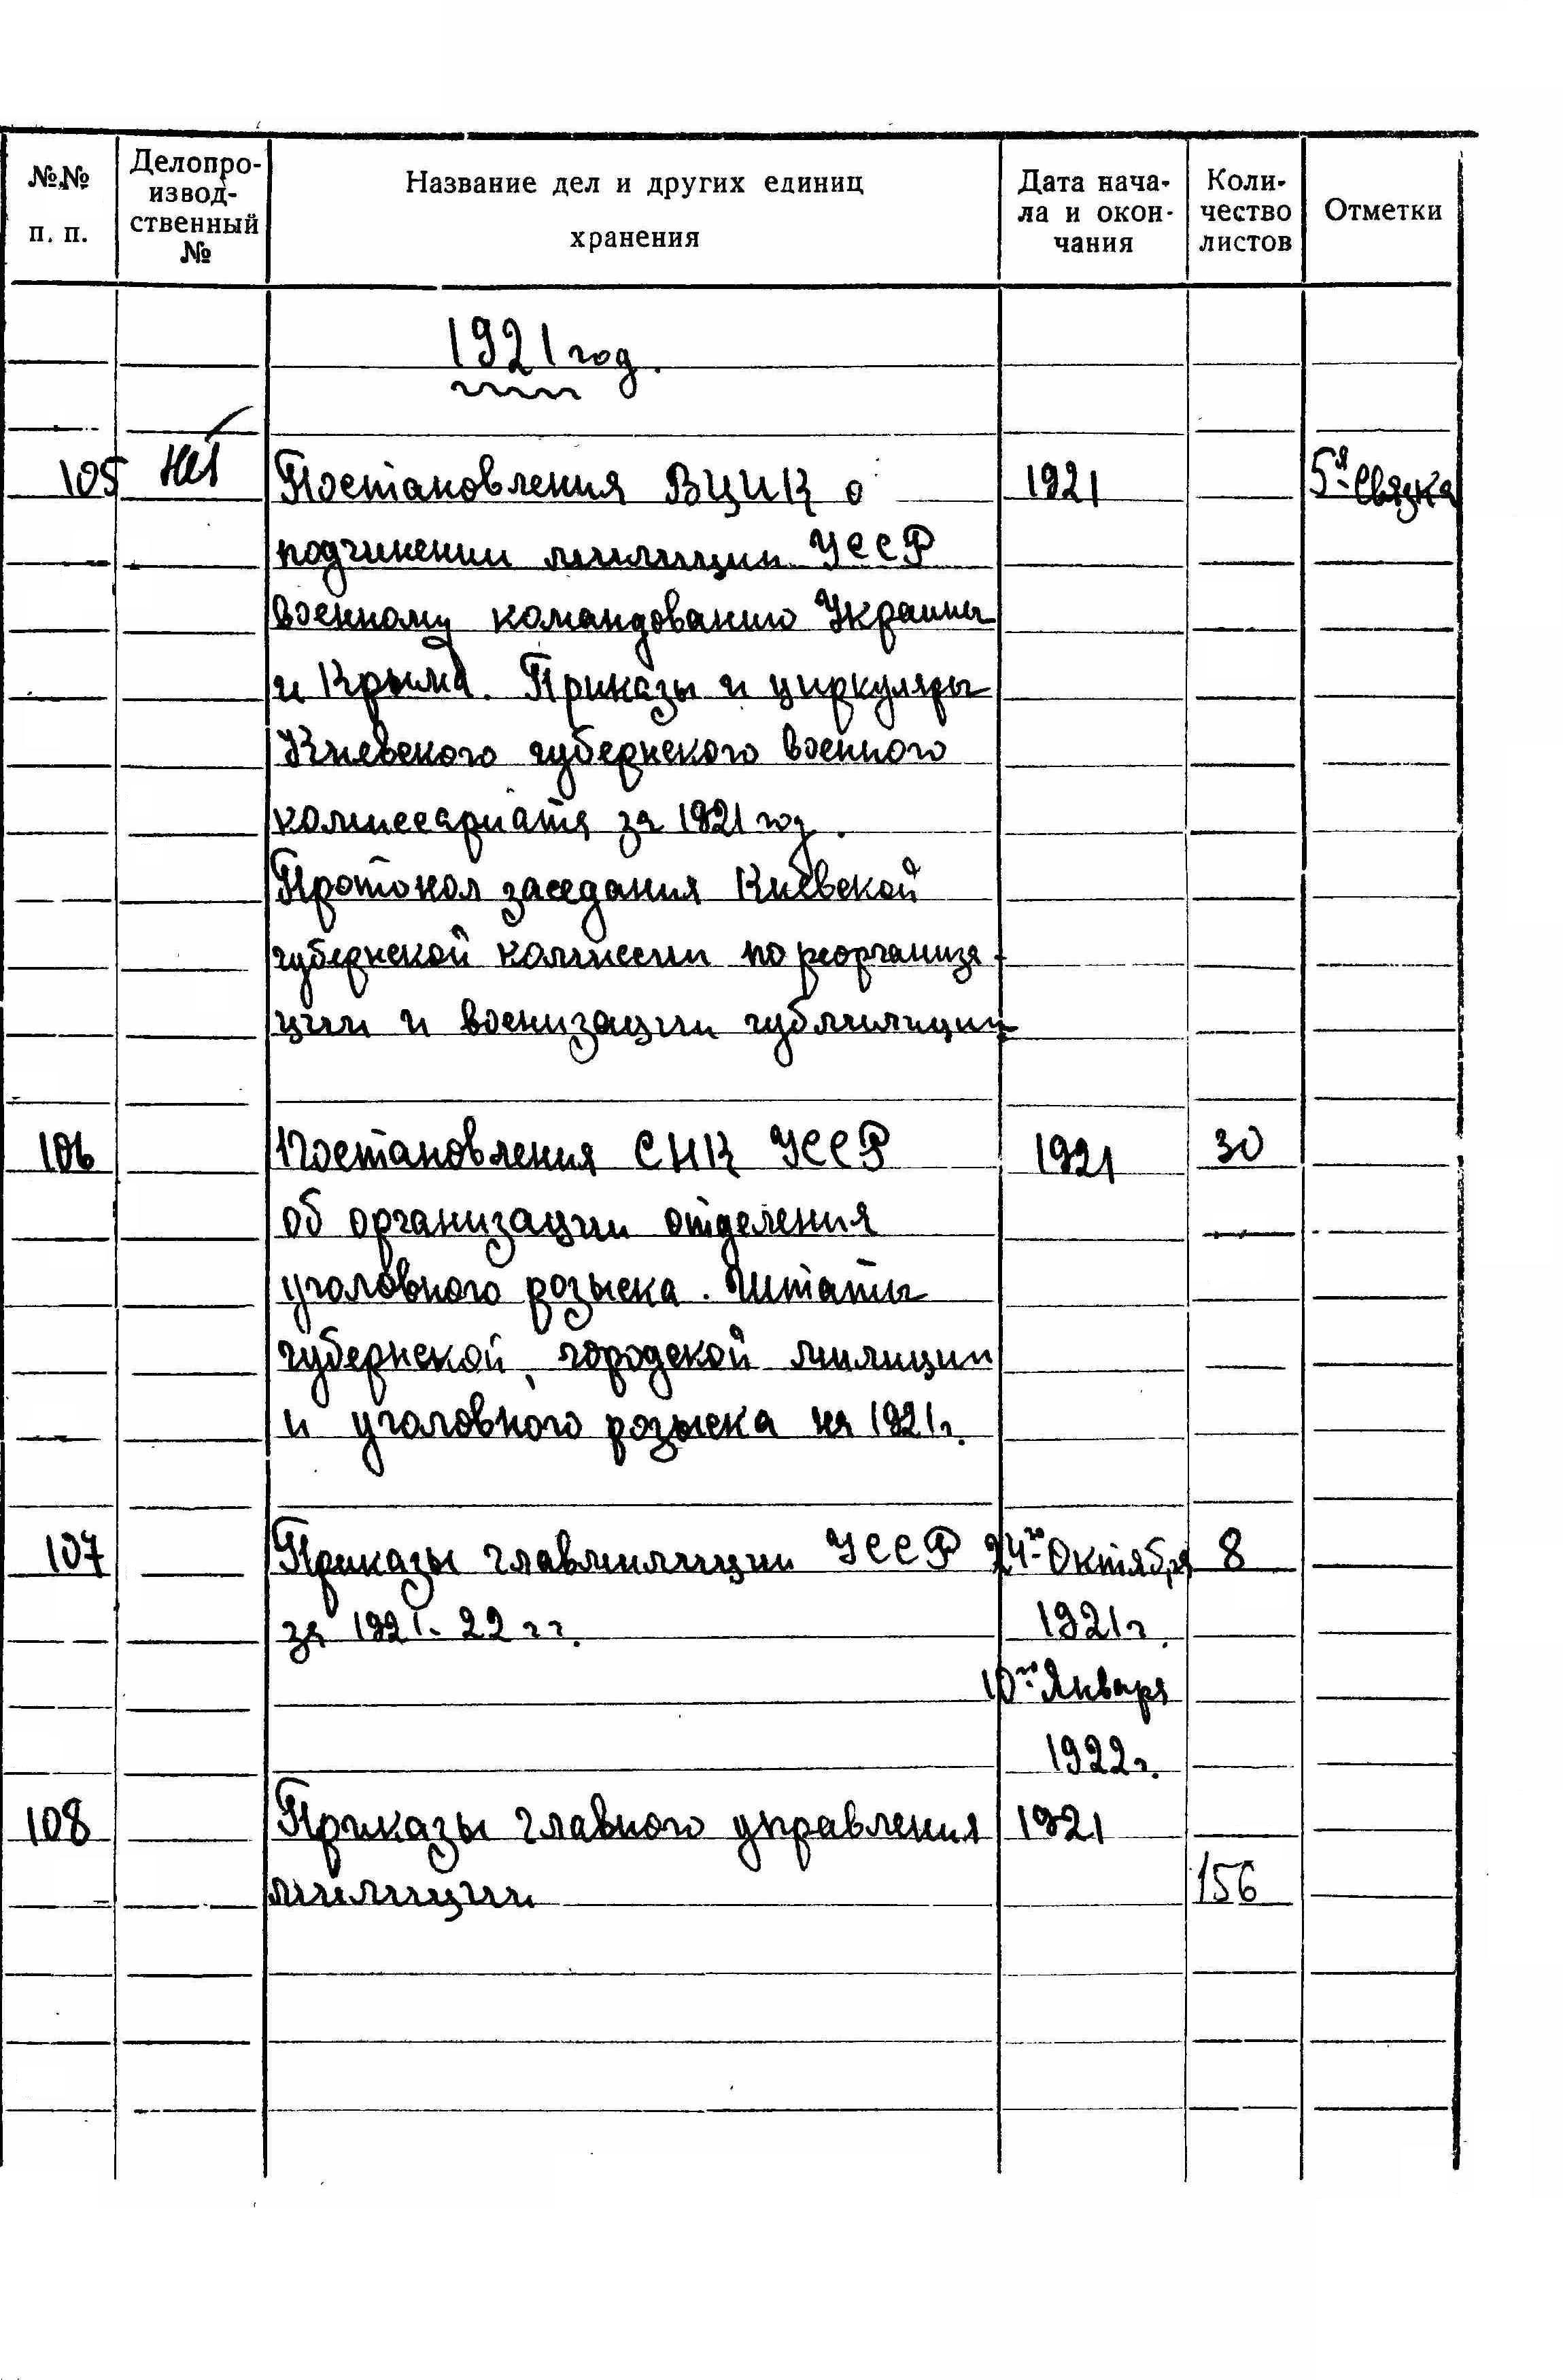 №№ п. п. Делопро-извод-ственный № Название дел и других единиц хранения Дата нача-ла и окон-чания Коли-чество листов Отметки
1921 год.
105 Постановления ВЦИК о 1921 5-я Связка
подчинении милиции УССР
военному командованию Украины
и Крыма. Приказы и циркуляры
Киевского губернского военного
комиссариата за 1921 год.
Протокол заседания Киевской
губернской комиссии по реорганиза-
ции и военизации губмилиции
106 Постановления СНК УССР 1921 30
об организации отделения
уголовного розыска. Штаты
губернской, городской милиции
и уголовного розыска на 1921г.
107 Приказы главмилиции УССР 24го Октября 8
за 1921-22 гг. 1921г.
10го Января
1922г.
108 Приказы главного управления 1921
милиции 156